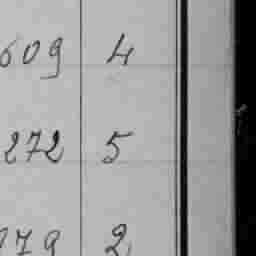 609 4
272 5
79 2